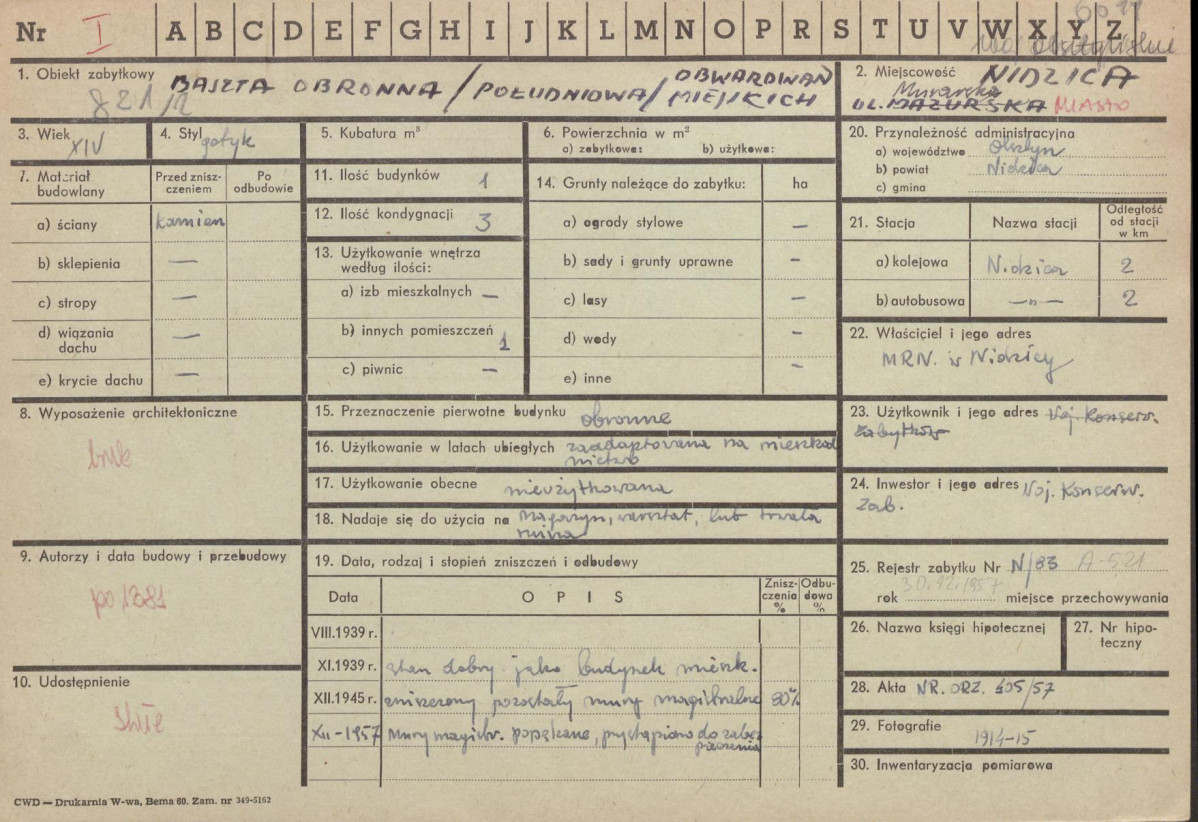 6011
Nr I A B C D E F G H I J K L M N O P R S T U V W X Y Z
woj. olsztyńskie
1. Obiekt zabytkowy BASZTA OBRONNA /POŁUDNIOWA/ OBWAROWAŃ MIEJSKICH
821/2
2. Miejscowość NIDZICA
Murarska
UL. MAZURSKA MIASTO
3. Wiek XIV
4. Styl gotyk
5. Kubatura m³
6. Powierzchnia w m²
a) zabytkowe: b) użytkowe:
7. Materiał budowlany
Przed zniszczeniem
Po odbudowie
a) ściany kamień
b) sklepienia —
c) stropy —
d) wiązania dachu —
e) krycie dachu —
11. Ilość budynków 1
12. Ilość kondygnacji 3
13. Użytkowanie wnętrza według ilości:
a) izb mieszkalnych —
b) innych pomieszczeń 1
c) piwnic —
14. Grunty należące do zabytku: ha
a) ogrody stylowe —
b) sady i grunty uprawne —
c) lasy —
d) wody —
e) inne —
20. Przynależność administracyjna
a) województwo Olsztyn
b) powiat Nidzica
c) gmina
21. Stacja Nazwa stacji Odległość od stacji w km
a) kolejowa Nidzica 2
b) autobusowa —„— 2
22. Właściciel i jego adres
MRN. w Nidzicy
8. Wyposażenie architektoniczne
brak
15. Przeznaczenie pierwotne budynku obronne
16. Użytkowanie w latach ubiegłych zaadaptowana na mieszkalnictwo
17. Użytkowanie obecne nieużytkowana
18. Nadaje się do użycia na magazyn, warsztat, lub trwała ruina
23. Użytkownik i jego adres Woj. Konserw.
Zabytków
24. Inwestor i jego adres Woj. Konserw.
Zab.
9. Autorzy i data budowy i przebudowy
po 1381
10. Udostępnienie
stałe
19. Data, rodzaj i stopień zniszczeń i odbudowy
Data O P I S Zniszczenia % Odbudowa %
VIII.1939 r.
XI.1939 r. stan dobry jako budynek mieszk.
XII.1945 r. zniszczony pozostały mury magistralne 80%
XII-1957 mury magistr. popękane, przystąpiono do zabezpieczenia
25. Rejestr zabytku Nr N/33 A-521
rok 30.12.1957 miejsce przechowywania
26. Nazwa księgi hipotecznej
27. Nr hipoteczny
28. Akta NR. ORZ. 405/57
29. Fotografie
1914-15
30. Inwentaryzacja pomiarowa
CWD — Drukarnia W-wa, Bema 60. Zam. nr 349-5162